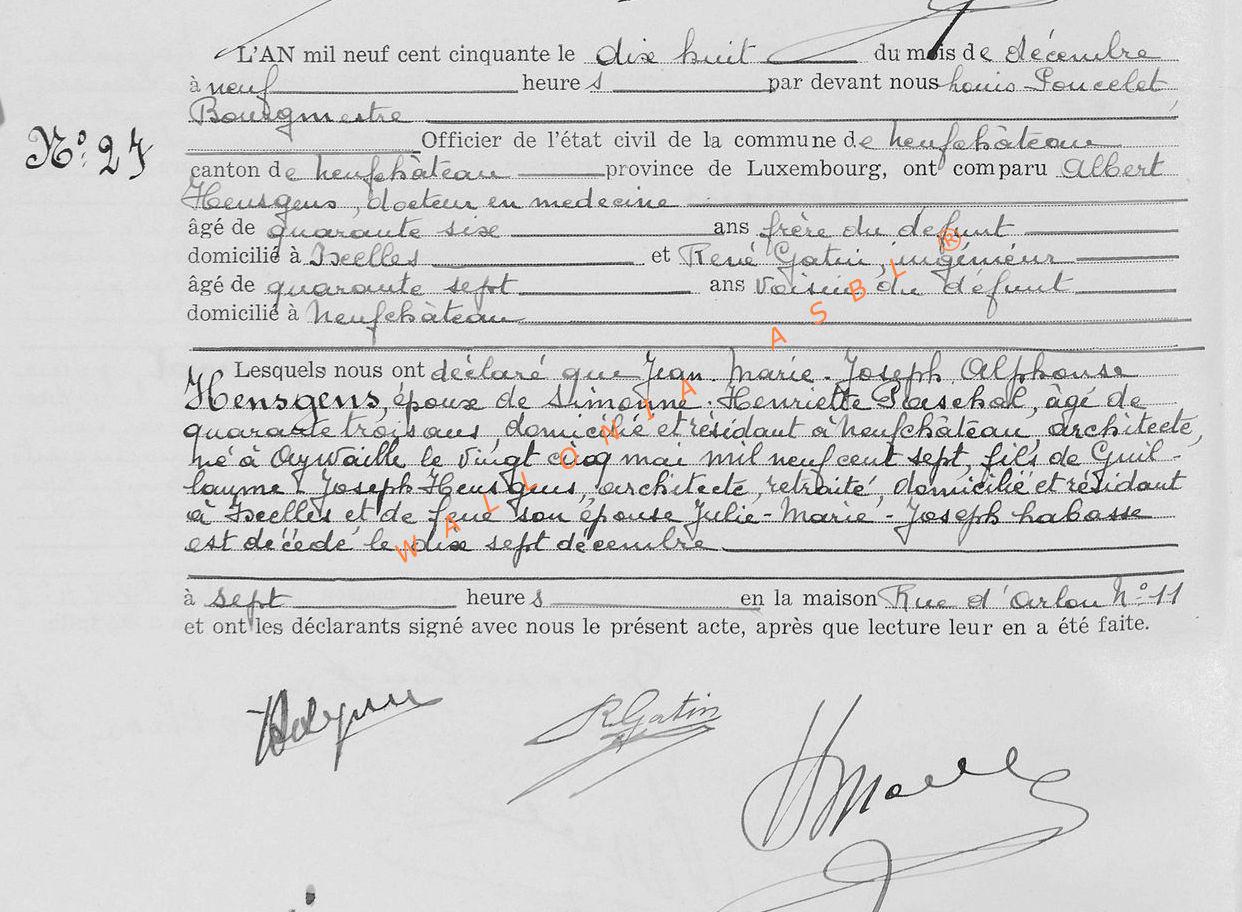 L'AN mil neuf cent cinquante le dix huit du mois de décembre
à neuf heures par devant nous Louis Poncelet
Bourgmestre,
N° 27
Officier de l'état civil de la commune de Neufchâteau
canton de Neufchâteau province de Luxembourg, ont comparu Albert
Hensgens, docteur en medecine
âgé de quarante six ans frère du defunt
domicilié à Ixelles et René Gatin, ingénieur
âgé de quarante sept ans voisin du défunt
domicilié à Neufchâteau
Lesquels nous ont déclaré que Jean-Marie-Joseph Alphonse
Hensgens, époux de Simonne-Henriette Paschal, âgé de
quarante trois ans, domicilié et résidant à Neufchâteau, architecte,
né à Aywaille le vingt cinq mai mil neuf cent sept, fils de Guil-
laume-Joseph Hensgens, architecte, retraité, domicilié et résidant
à Ixelles et de feue son épouse Julie-Marie-Joseph Labasse
est décédé le dix sept décembre
à sept heures en la maison Rue d'Arlon N° 11
et ont les déclarants signé avec nous le présent acte, après que lecture leur en a été faite.
R Gatin
WALLONIA ASBL ®